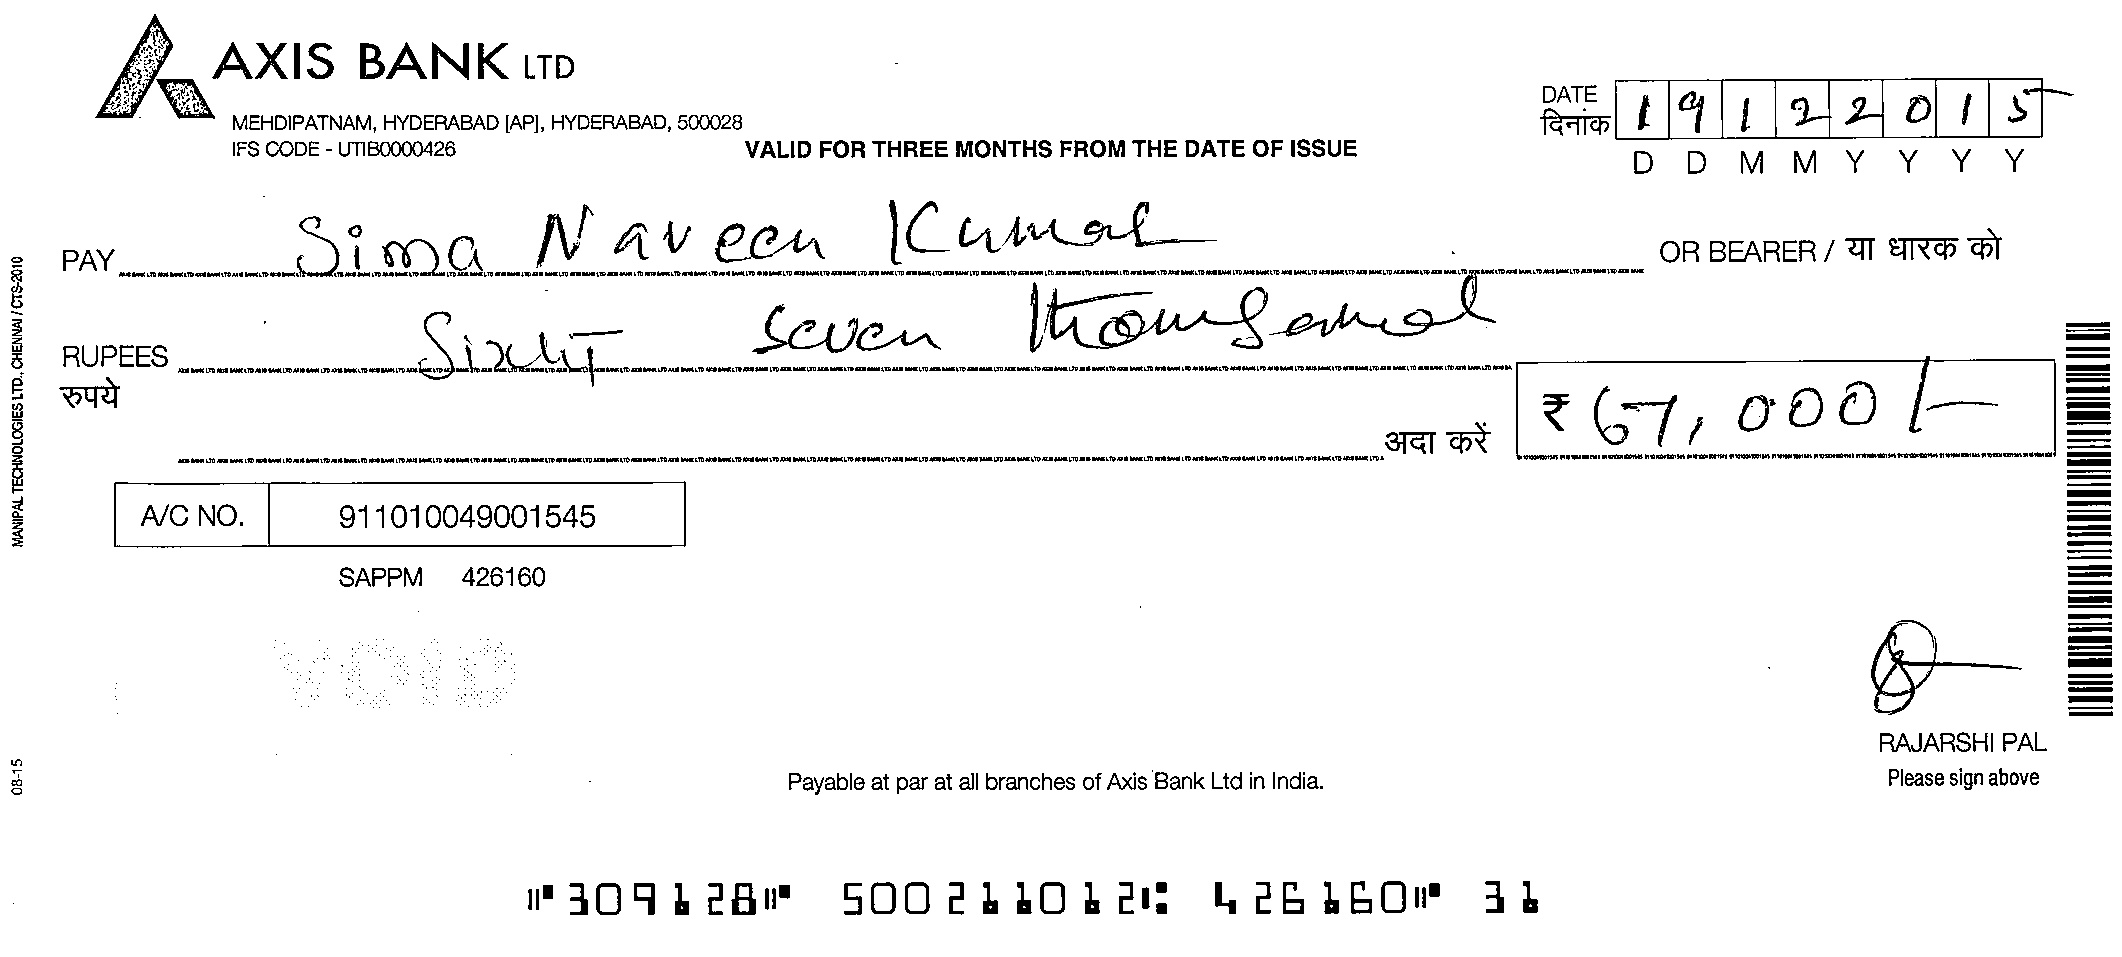 AXIS BANK LTD
MEHDIPATNAM, HYDERABAD [AP], HYDERABAD, 500028
IFS CODE - UTIB0000426
VALID FOR THREE MONTHS FROM THE DATE OF ISSUE
DATE
दिनांक
1 9 1 2 2 0 1 5
D D M M Y Y Y Y
PAY Sima Naveen Kumar OR BEARER / या धारक को
RUPEES Sixty Seven thousand
रुपये
अदा करें ₹ 67,000/-
A/C NO. 911010049001545
SAPPM 426160
VOID
RAJARSHI PAL
Please sign above
Payable at par at all branches of Axis Bank Ltd in India.
⑈309128⑈ 500211012⑆ 426160⑈ 31
MANIPAL TECHNOLOGIES LTD., CHENNAI / CTS-2010
08-15